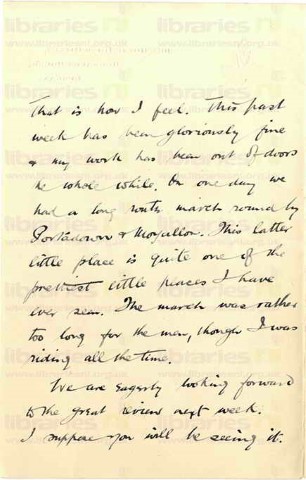 That is how I feel. This past
week has been gloriously fine
& my work has been out of doors
he whole while. On one day we
had a long route march round by
Portadown & Moyallon. This latter
little place is quite one of the
prettiest little places I have
ever seen. The march was rather
too long for the men, though I was
riding all the time.
We are eagerly looking forward
to the great review next week.
I suppose you will be seeing it.